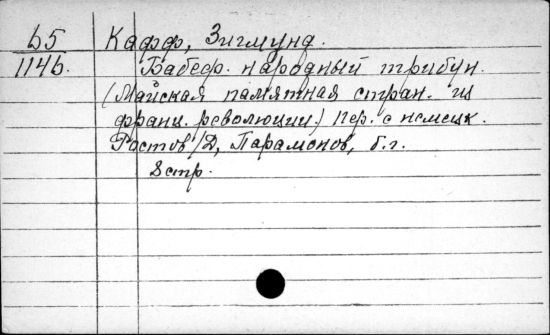 Б5 Кафф, Зигмунд.
1146. Бабеф. народный трибун.
(Майская памятная стран. из
франц. революции.) Пер. с немецк.
Ростов/Д, Парамонов, б.г.
8 стр.